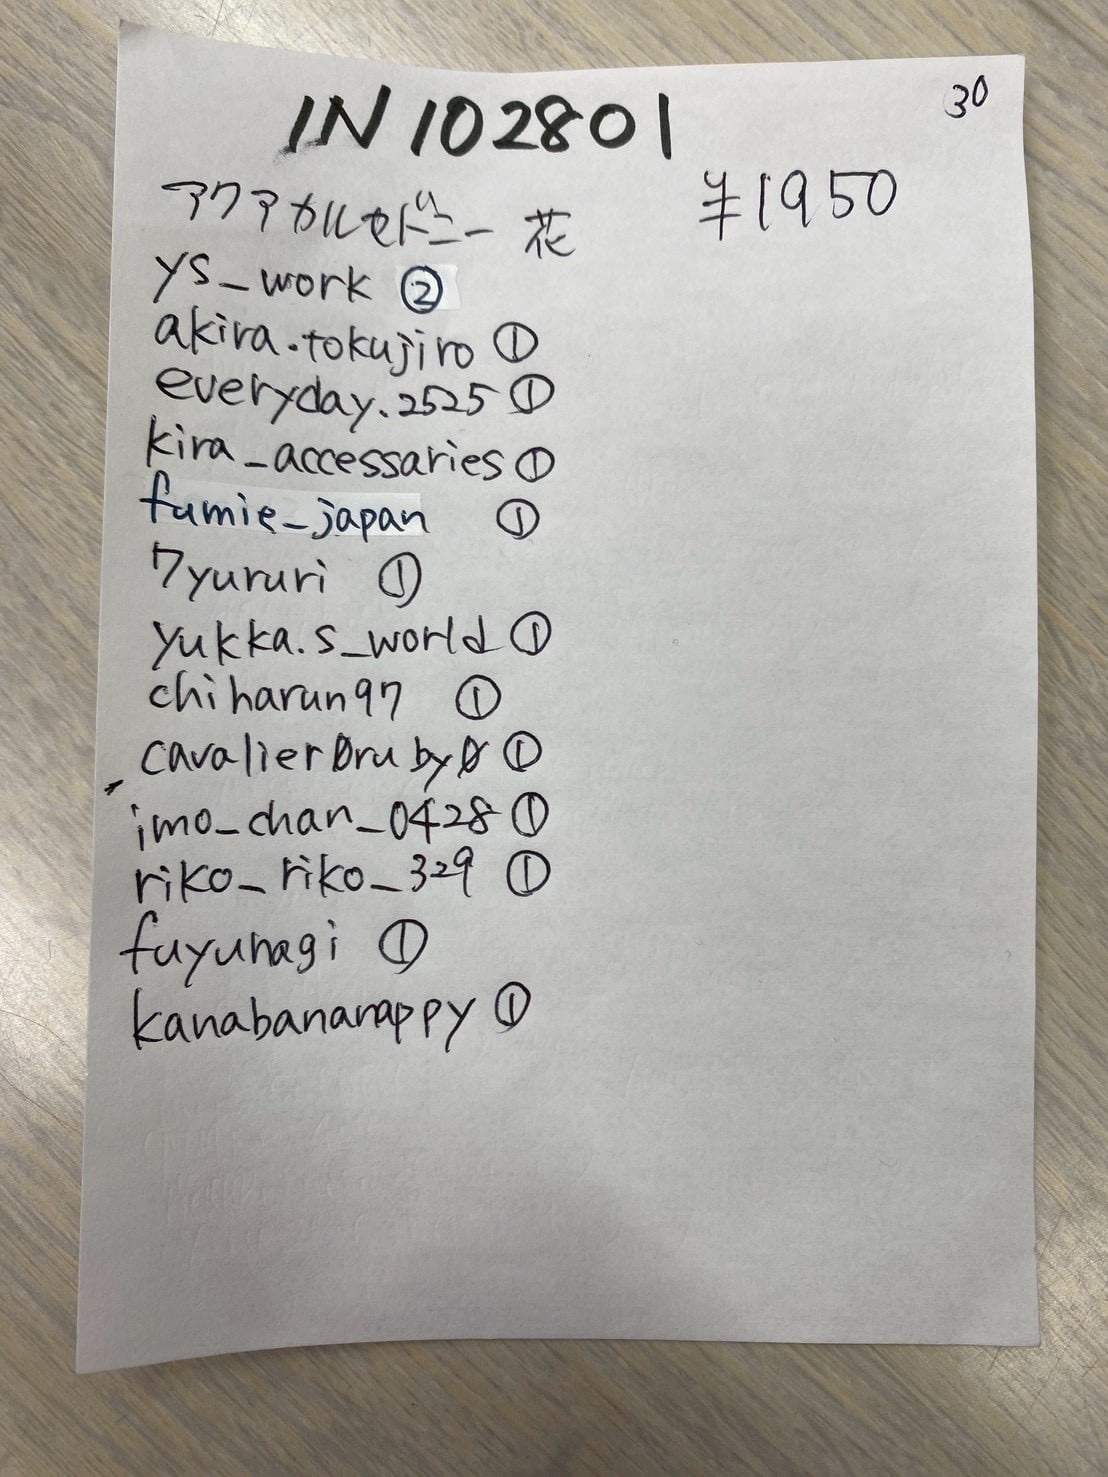 30
IN102801
¥1950
アクアカルセドニー 花
ys_work ②
akira.tokujiro ①
everyday.2525 ①
kira_accessaries ①
fumie_japan ①
7yururi ①
yukka.s_world ①
chiharun97 ①
cavalier0ruby0 ①
imo_chan_0428 ①
riko_riko_329 ①
fuyunagi ①
kanabananappy ①